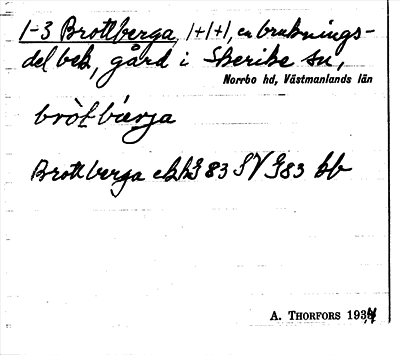 1-3 Brottberga, 1+1+1, en bruknings-
del beb., gård i Skerike sn,
Norrbo hd, Västmanlands län
bròt bærja
Brottberga ekk G 83 SV G83 bb
A. THORFORS 1934